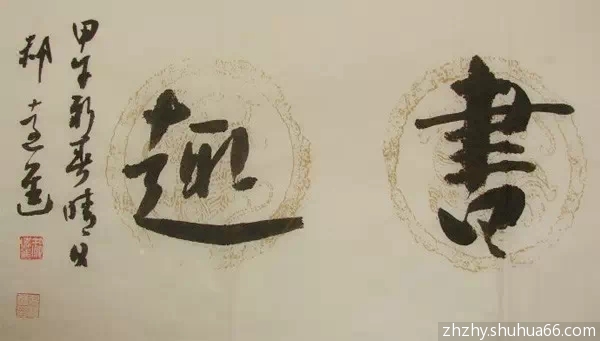 書趣
甲午新春晴日
郝
zhzhy.shuhua66.com